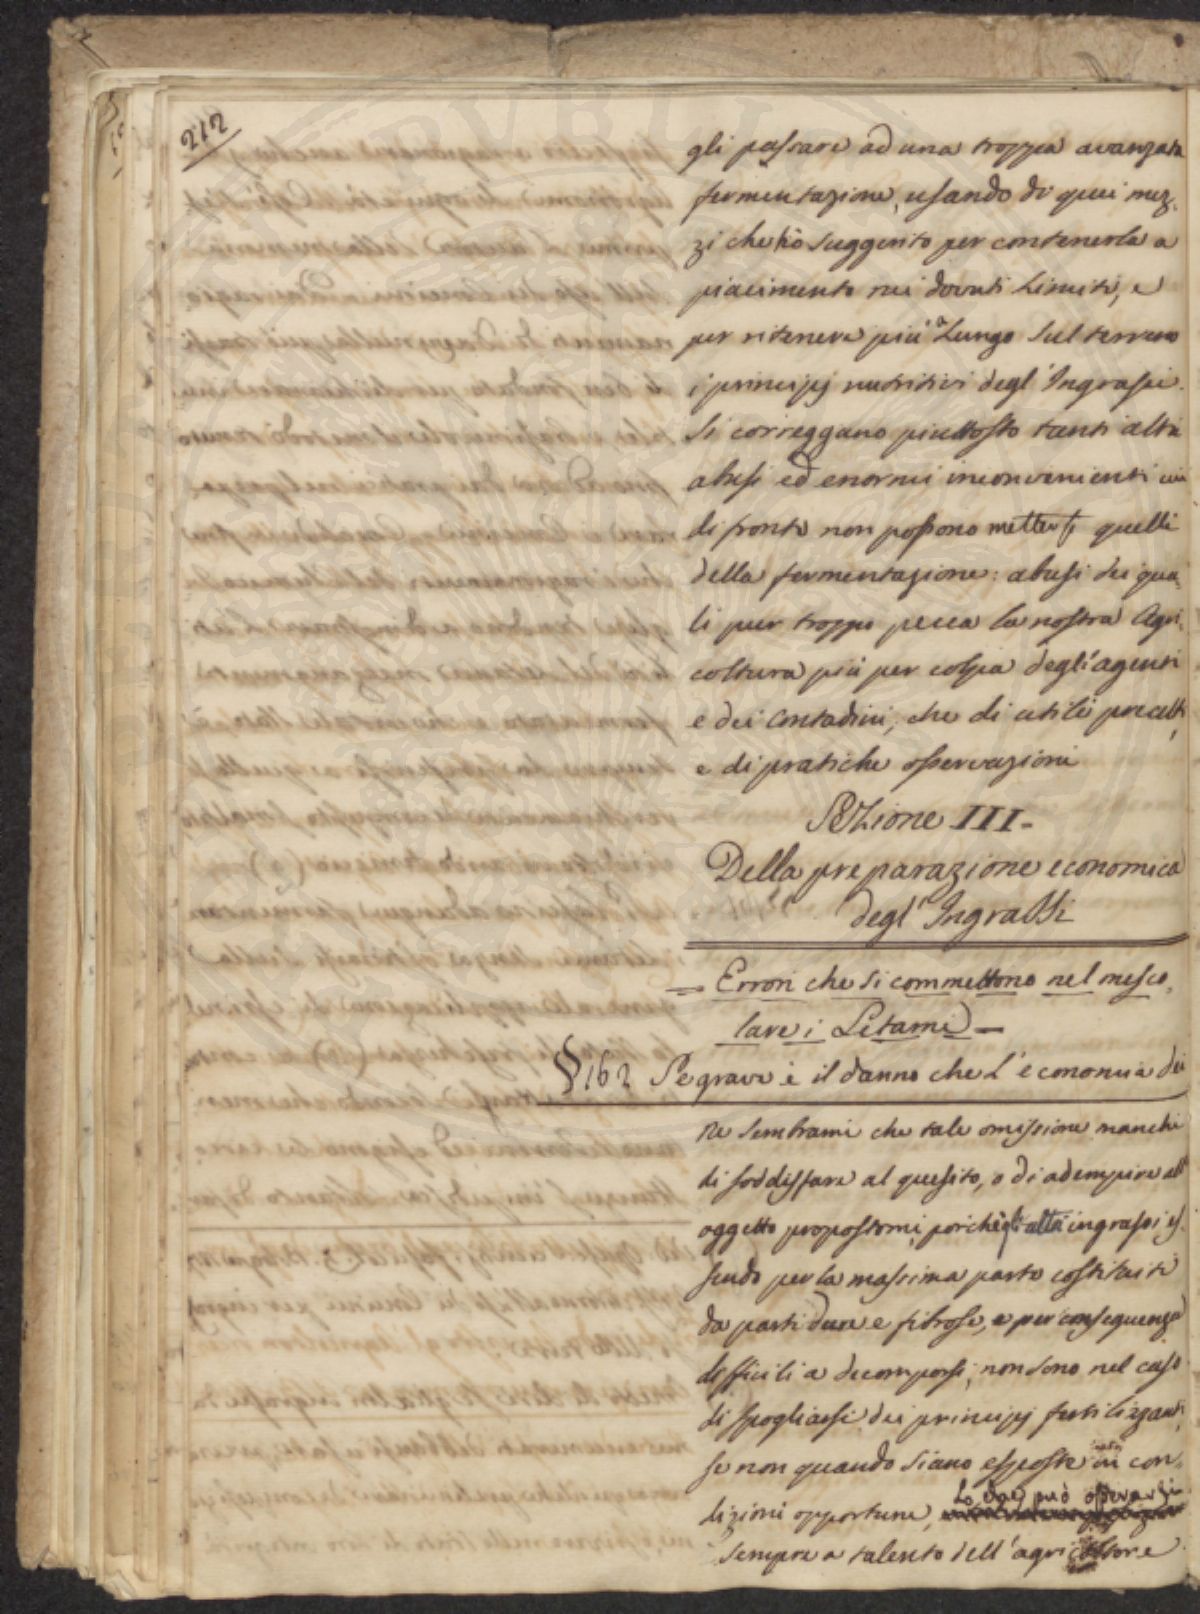 212
gli passare ad una troppa avanzata
fermentazione, usando di quei mez-
zi che hò suggerito per contenerla a
piacimento nei dovuti Limiti, e
per ritenere più a Lungo sul terreno
i principj nutritivi degl'Ingrassi.
Si correggano piuttosto tanti altri
abusi ed enormi inconvenienti cui
di fronte non possono mettersi quelli
della fermentazione: abusi dei qua-
li pur troppo pecca la nostra Agri-
coltura più per colpa degl'agenti
e dei Contadini, che di utili precetti,
e di pratiche osservazioni
SeZione III-
Della preparazione economica
degl'Ingrassi
= Errori che si commettono nel mesco-
lare i Letami =
§ 162 Se grave è il danno che L'economia dei
Ne sembrami che tale omissione manchi
di soddisfare al quesito, o di adempire all'
oggetto propostomi, poichè gli altri ingrassi es-
sendo per la massima parte costituiti
da parti dure e fibrose, e per conseguenza
difficili a decomporsi, non sono nel caso
di spogliarsi dei principj fertilizzanti,
se non quando siano esposte in con-
dizioni opportune, Lo che può operarsi
sempre a talento dell'agricoltore